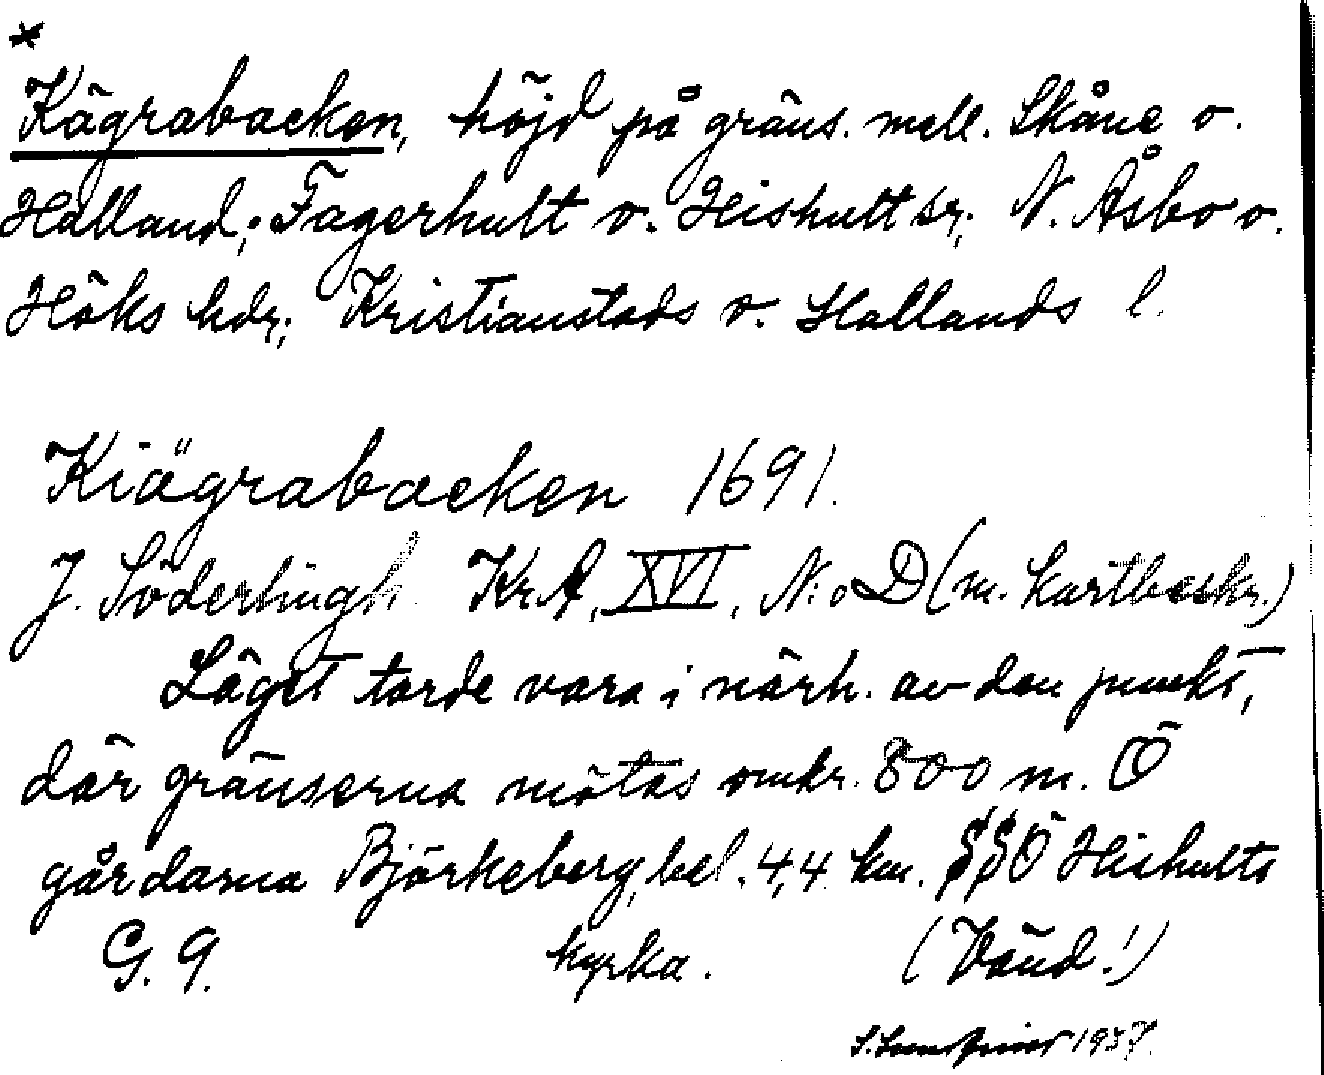 *
Kägrabacken, höjd på gräns. mell. Skåne o.
Halland; Fagerhult o. Hishult sr; N. Åsbo o.
Höks hdr; Kristianstads o. Hallands l.
Kiägrabacken 1691.
J. Söderlingh. KrA, XVI, N:o D (m. kartbeskr.)
Läget torde vara i närh. av den punkt,
där gränserna mötas omkr. 800 m. Ö
gårdarna Björkeberg, bel. 4,4 km. SSÖ Hishults
G. 9. kyrka. (Vänd!)
1937.